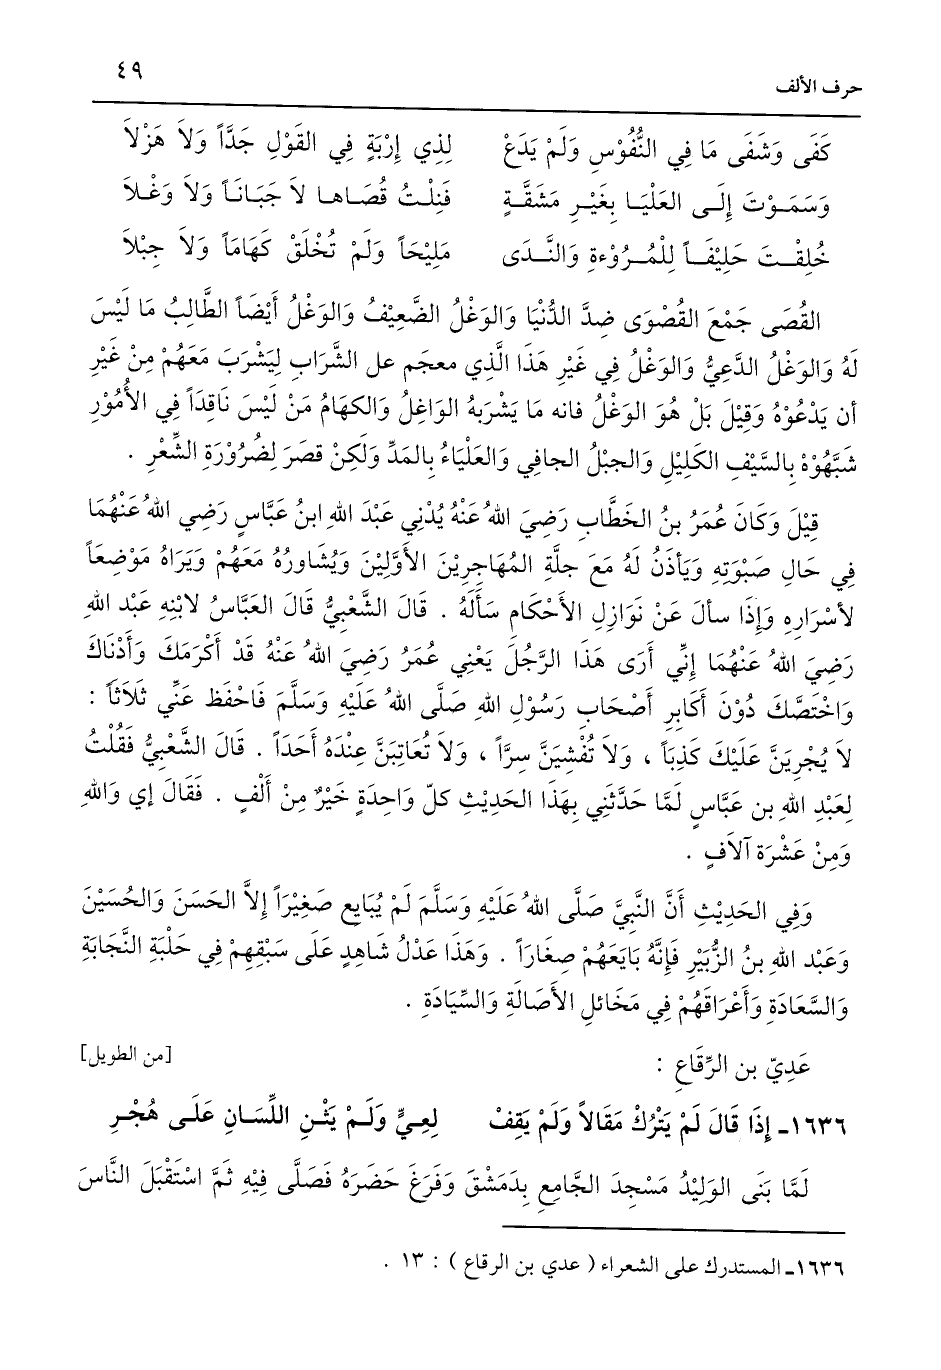 حرف الألف ٤٩
كَفَى وَشَفَى مَا فِي النُّفُوْسِ وَلَمْ يَدَعْ لِذِي إِرْبَةٍ فِي القَوْلِ جَدَّاً وَلاَ هَزْلاَ
وَسَمَوْتَ إِلَى العَلْيَا بِغَيْرِ مَشَقَّةٍ فَنِلْتُ قُصَاها لاَ جَبَانَاً وَلاَ وَغْلاَ
خُلِقْتَ حَلِيْفَاً لِلْمُرُوْءةِ وَالنَّدَى مَلِيْحَاً وَلَمْ تُخْلَقْ كَهَامَاً وَلاَ جِبْلاَ
القُصَى جَمْعَ القُصْوَى ضِدَّ الدُّنْيَا وَالوَغْلُ الضَّعِيْفُ وَالوَغْلُ أَيْضَاً الطَّالِبُ مَا لَيْسَ
لَهُ وَالوَغْلُ الدَّعِيُّ وَالوَغْلُ فِي غَيْرِ هَذَا الَّذِي معجَم عل الشَّرَابِ لِيَشْرَبَ مَعَهُمْ مِنْ غَيْرِ
أن يَدْعُوْهُ وَقِيْلَ بَلْ هُوَ الوَغْلُ فانه مَا يَشْرَبهُ الوَاغِلُ وَالكهَامُ مَنْ لَيْسَ نَاقِدَاً فِي الأُمُوْرِ
شَبَّهُوْهْ بِالسَّيْفِ الكَلِيْلِ وَالجبْلُ الجافِي وَالعَلْيَاءُ بِالمَدِّ وَلَكِنْ قصَرَ لِضُرُوْرَةِ الشِّعْرِ .
قِيْلَ وَكَانَ عُمَرُ بنُ الخَطَّابِ رَضِيَ اللهُ عَنْهُ يُدْنِي عَبْدَ اللهِ ابنُ عَبَّاسٍ رَضِي اللهُ عَنْهُمَا
فِي حَالِ صَبْوَتِهِ وَيَأذَنُ لَهُ مَعَ جلَّةِ المُهَاجِرِيْنَ الأوَّلِيْنَ وَيُشَاورُهُ مَعَهُمْ وَيَرَاهُ مَوْضِعَاً
لأسْرَارِهِ وَإِذَا سألَ عَنْ نَوَازِلِ الأَحْكَامِ سَأَلَهُ . قَالَ الشَّعْبِيُّ قَالَ العَبَّاسُ لابْنِهِ عَبْد اللهِ
رَضِيَ اللهُ عَنْهُمَا إِنِّي أَرَى هَذَا الرَّجُلَ يَعْنِي عُمَرُ رَضِيَ اللهُ عَنْهُ قَدْ أَكْرَمَكَ وَأَدْنَاكَ
وَاخْتَصَّكَ دُوْنَ أَكَابِرِ أَصْحَابِ رَسُوْلِ اللهِ صَلَّى اللهُ عَلَيْهِ وَسَلَّمَ فَاحْفَظ عَنِّي ثَلاَثَاً :
لاَ يُجْرِيَنَّ عَلَيْكَ كَذِبَاً ، وَلاَ تُفْشِيَنَّ سِرَّاً ، وَلاَ تُعَاتِبَنَّ عِنْدَهُ أَحَدَاً . قَالَ الشَّعْبِيُّ فَقُلْتُ
لِعَبْدِ اللهِ بن عَبَّاسٍ لَمَّا حَدَّثَنِي بِهَذَا الحَدِيْثِ كلّ وَاحِدَةٍ خَيْرٌ مِنْ أَلْفٍ . فَقَالَ إي وَاللهِ
وَمِنْ عَشْرَة آلاَفٍ .
وَفِي الحَدِيْثِ أَنَّ النَّبِيَّ صَلَّى اللهُ عَلَيْهِ وَسَلَّمَ لَمْ يُبَايِع صَغِيْرَاً إلاَّ الحَسَنَ وَالحُسَيْنَ
وَعَبْد اللهِ بنُ الزُّبَيْرِ فَإِنَّهُ بَايَعَهُمْ صِغَارَاً . وَهَذَا عَدْلُ شَاهِدٍ عَلَى سَبْقِهِمْ فِي حَلْبَةِ النَّجَابَةِ
وَالسَّعَادَةِ وَأَعْرَاقَهُمْ فِي مَخَائلِ الأَصَالَةِ وَالسِّيَادَةِ .
عَدِيّ بن الرِّقَاعِ : [من الطويل]
١٦٣٦ـ إِذَا قَالَ لَمْ يَتْرُكْ مَقَالاً وَلَمْ يَقِفْ لِعِيٍّ وَلَمْ يَثْنِ اللِّسَانِ عَلَى هُجْرِ
لَمَّا بَنَى الوَلِيْدُ مَسْجِدَ الجَّامِعِ بِدَمَشْقَ وَفَرغَ حَضَرَهُ فَصَلَّى فِيْهِ ثمَّ اسْتَقْبَلَ النَّاسَ
١٦٣٦ـ المستدرك على الشعراء ( عدي بن الرقاع ) : ١٣ .